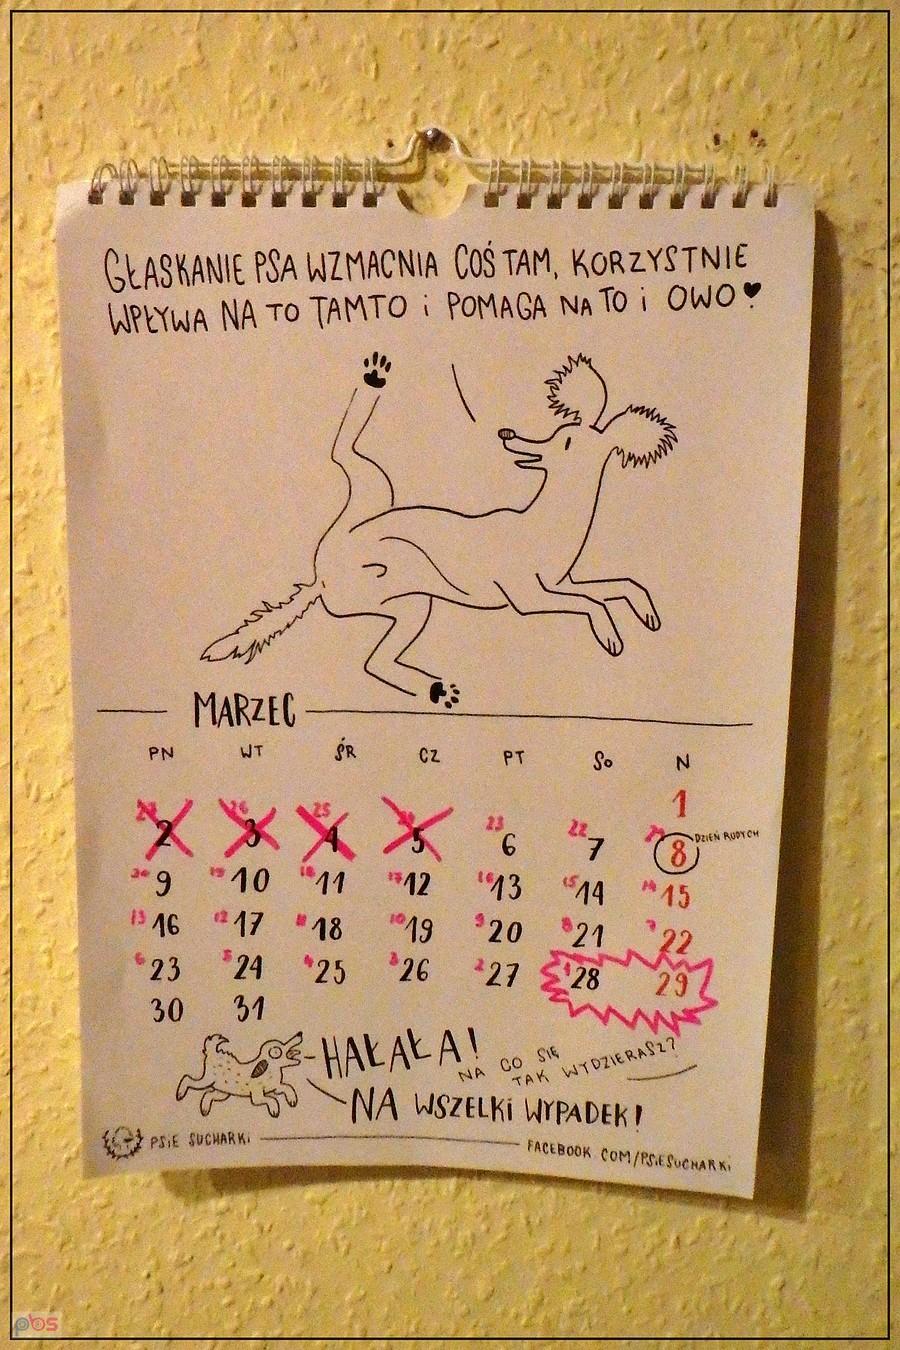 GŁASKANIE PSA WZMACNIA COŚ TAM, KORZYSTNIE
WPŁYWA NA TO TAMTO i POMAGA NA TO i OWO!
MARZEC
PN WT ŚR CZ PT So N
1
26 25 23 22
2 3 4 5 6 7 8 DZIEŃ RUDYCH
20 19 18 17 16 15 14
9 10 11 12 13 14 15
13 12 11 10 9 8 7
16 17 18 19 20 21 22
6 5 4 3 2 1
23 24 25 26 27 28 29
30 31
HAŁAŁA!
NA CO SIĘ
TAK WYDZIERASZ?
NA WSZELKi WYPADEK!
PSiE SUCHARKi
FACEBOOK.COM/PSiESUCHARKi
pbs